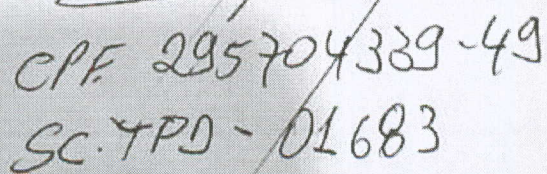 CPF. 295704339-49
SC.TPD - 01683